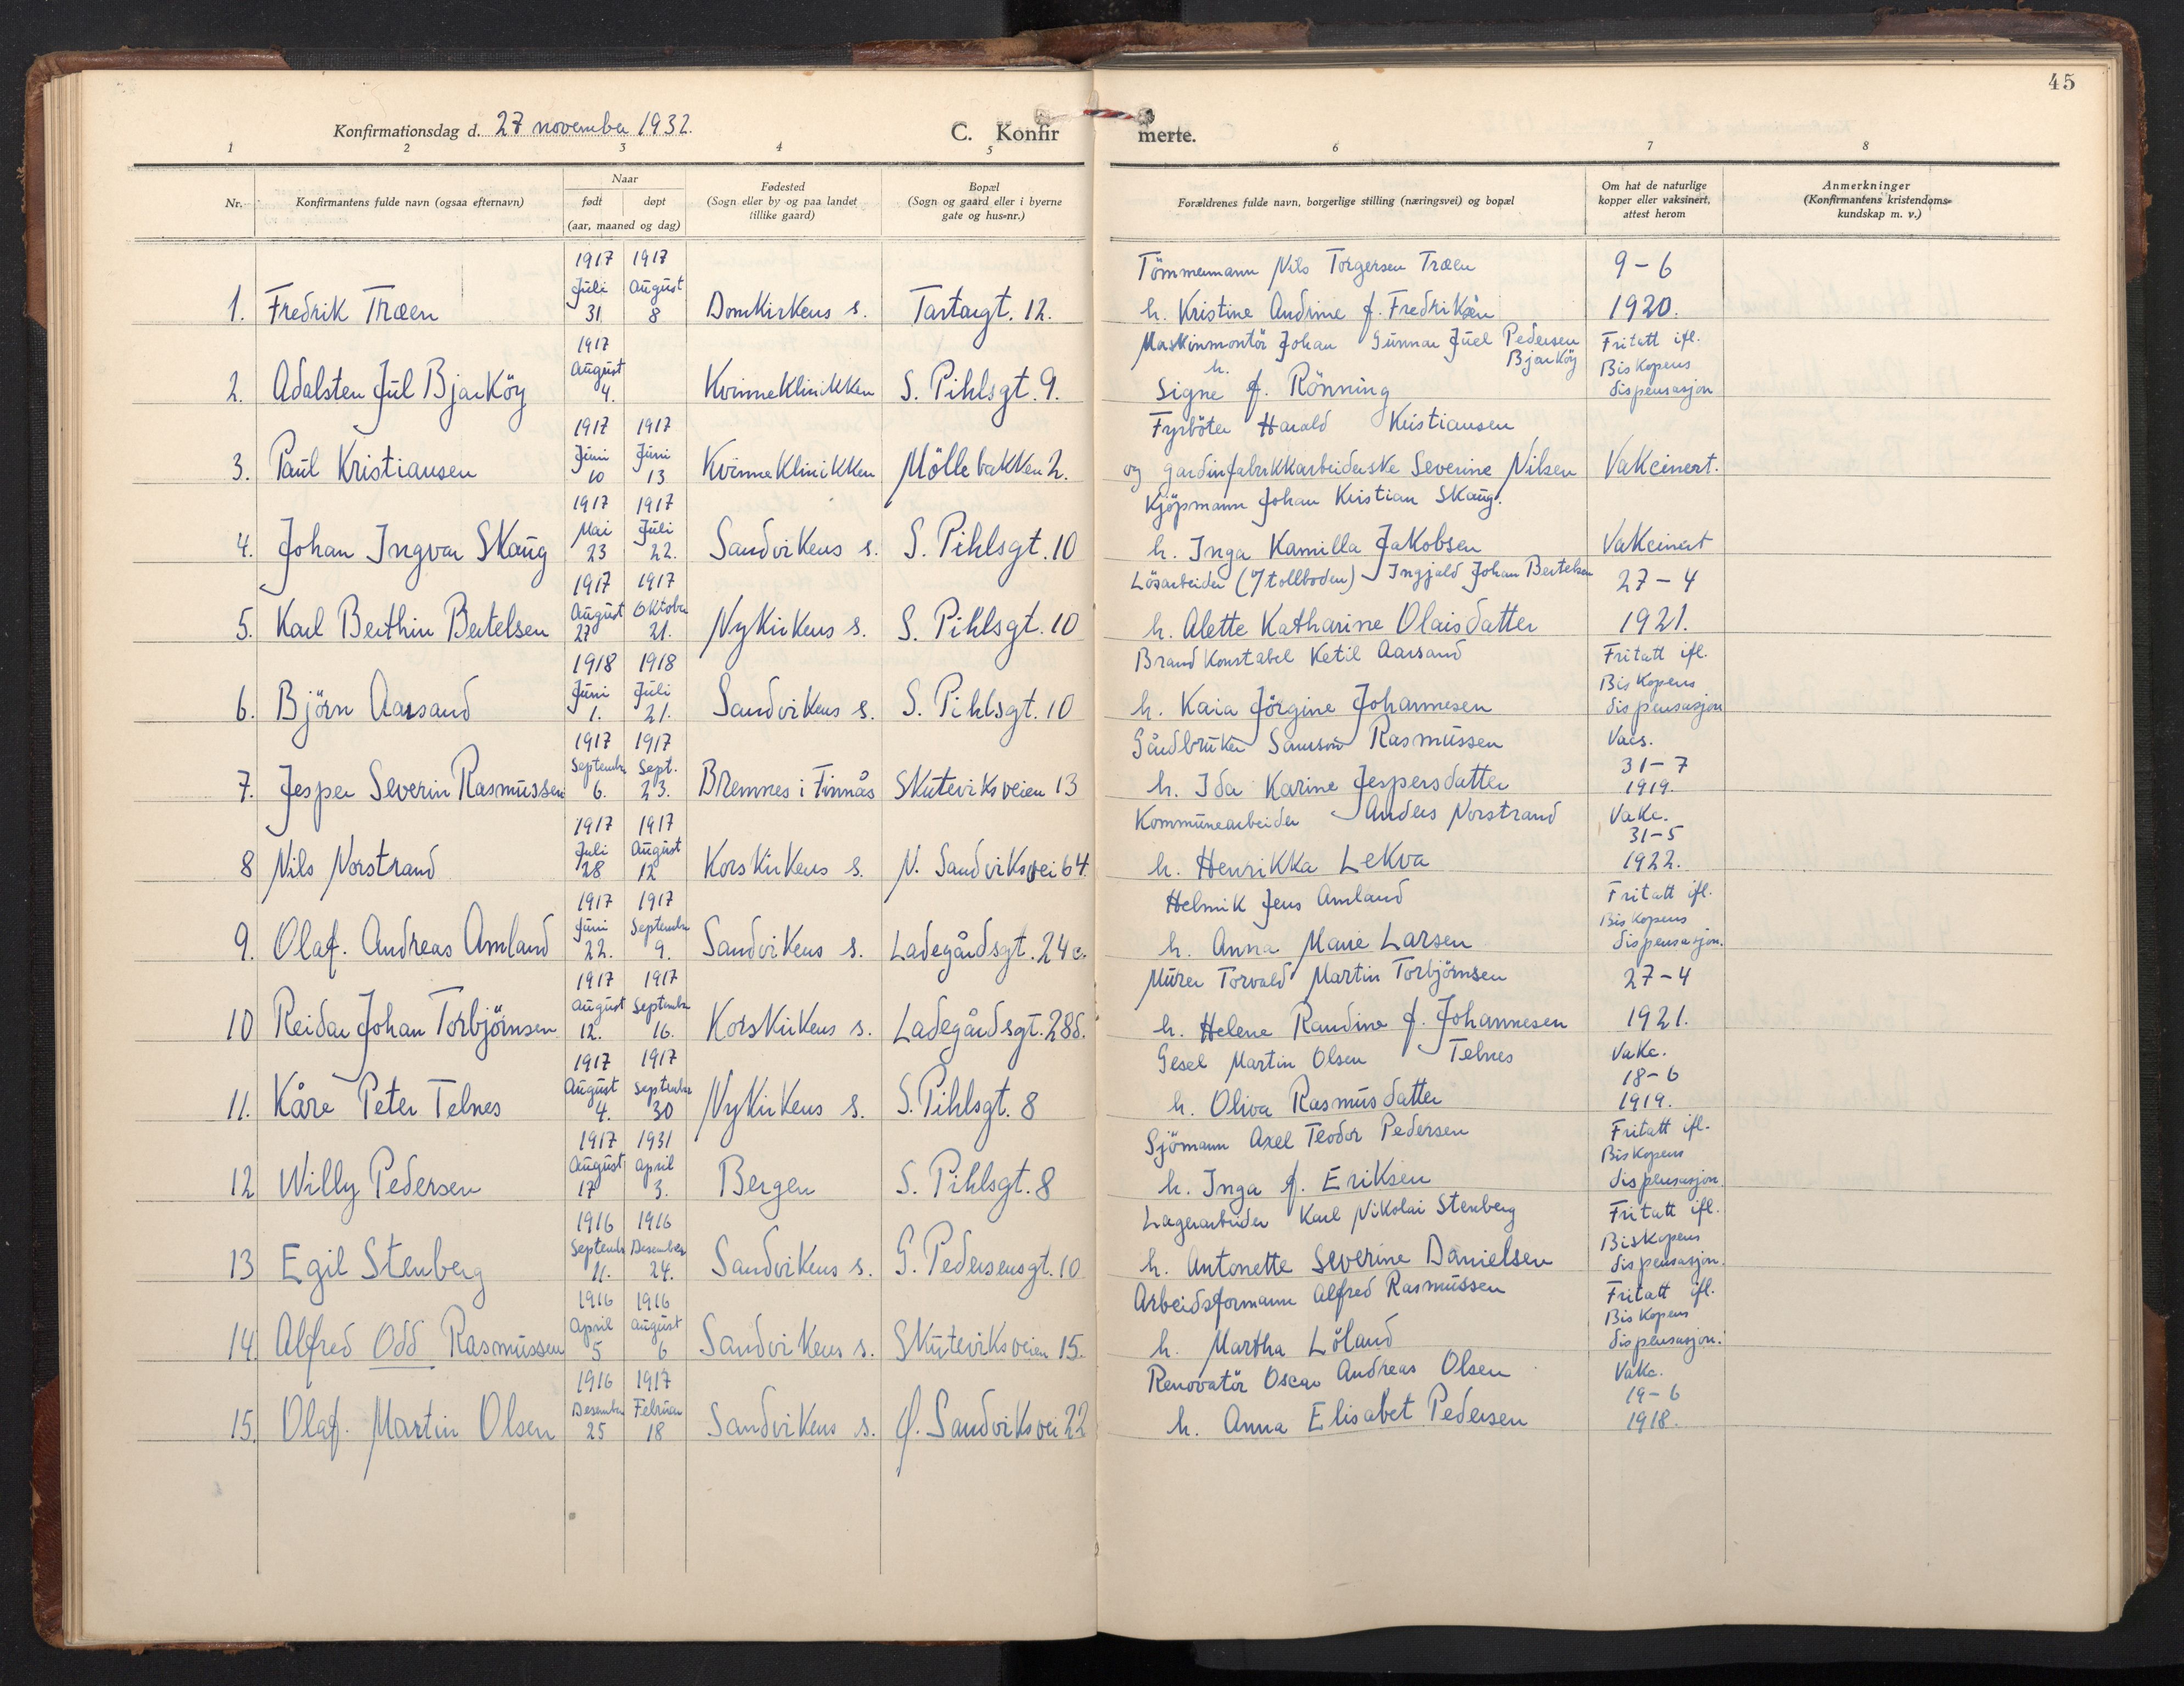 45
Konfirmationsdag d. 27 november 1932.
C. Konfirmerte.
1 2 3 4 5 6 7 8
Nr.
Konfirmantens fulde navn (ogsaa efternavn)
Naar
født døpt
(aar, maaned og dag)
Fødested
(Sogn eller by og paa landet
tillike gaard)
Bopæl
(Sogn og gaard eller i byerne
gate og hus-nr.)
Forældrenes fulde navn, borgerlige stilling (næringsvei) og bopæl
Om hat de naturlige
kopper eller vaksinert,
attest herom
Anmerkninger
(Konfirmantens kristendoms-
kundskap m. v.)
1917 1917 Tömmermann Nils Torgersen Træen 9-6
Juli August
1. Fredrik Træen 31 8 Domkirkens s. Tartargt. 12. h. Kristine Andrine f. Fredriksen 1920.
1917 Maskinmontör Johan Gunnar Juel Pedersen Fritatt ifl.
August Bjarköy Biskopens
2. Adalsten Jul Bjarköy 4. Kvinneklinikken S. Pihlsgt. 9. h. Signe f. Rönning dispensasjon
1917 1917 Fyrböter Harald Kristiansen
Juni Juni
3. Paul Kristiansen 10 13 Kvinneklinikken Möllebakken 2. og gardinfabrikkarbeiderske Severine Nilsen Vakcinert.
1917 1917 Kjöpmann Johan Kristian Skaug.
Mai Juli
4. Johan Ingvar Skaug 23 22. Sandvikens s. S. Pihlsgt. 10 h. Inga Kamilla Jakobsen Vakcinert
1917 1917 Lösarbeider (v/ tollboden) Ingjald Johan Bertelsen 27-4
August Oktober
5. Karl Berthin Bertelsen 27 21. Nykirkens s. S. Pihlsgt. 10 h. Alette Katharine Olaisdatter 1921.
1918 1918 Brandkonstabel Ketil Aarsand Fritatt ifl.
Juni Juli Biskopens
6. Björn Aarsand 1. 21. Sandvikens s. S. Pihlsgt. 10 h. Kaia Jörgine Johannesen dispensasjon
1917 1917 Gårdbruker Samson Rasmussen Vacs.
September Sept. 31-7
7. Jesper Severin Rasmussen 6. 23. Bremnes i Finnås Skuteviksveien 13 h. Ida Karine Jespersdatter 1919.
1917 1917 Kommunearbeider Anders Norstrand Vakc.
Juli August 31-5
8 Nils Norstrand 28 12 Korskirkens s. N. Sandviksvei 64. h. Henrikka Lekva 1922.
1917 1917 Helmik Jens Amland Fritatt ifl.
Juni September Biskopens
9. Olaf. Andreas Amland 22. 9. Sandvikens s. Ladegårdsgt. 24 c. h. Anna Marie Larsen dispensasjon.
1917 1917 Murer Torvald Martin Torbjörnsen 27-4
August September
10 Reidar Johan Torbjörnsen 12. 16. Korskirkens s. Ladegårdsgt. 28d. h. Helene Randine f. Johannesen 1921.
1917 1917 Gesel Martin Olsen Telnes Vakc.
August September 18-6
11. Kåre Peter Telnes 4. 30 Nykirkens s. S. Pihlsgt. 8 h. Oliva Rasmusdatter 1919.
1917 1931 Sjömann Axel Teodor Pedersen Fritatt ifl.
August April Biskopens
12 Willy Pedersen 17 3. Bergen S. Pihlsgt. 8 h. Inga f. Eriksen dispensasjon.
1916 1916 Lagerarbeider Karl Nikolai Stenberg Fritatt ifl.
September Desember Biskopens
13 Egil Stenberg 11. 24. Sandvikens s. G. Pedersensgt. 10 h. Antonette Severine Danielsen dispensasjon.
1916 1916 Arbeidsformann Alfred Rasmussen Fritatt ifl.
April August Biskopens
14. Alfred Odd Rasmussen 5 6 Sandvikens s. Skuteviksveien 15. h. Martha Löland dispensasjon.
1916 1917 Renovatör Oscar Andreas Olsen Vakc.
Desember Februar 19-6
15. Olaf. Martin Olsen 25 18 Sandvikens s. Ø. Sandviksvei 22 h. Anna Elisabet Pedersen 1918.